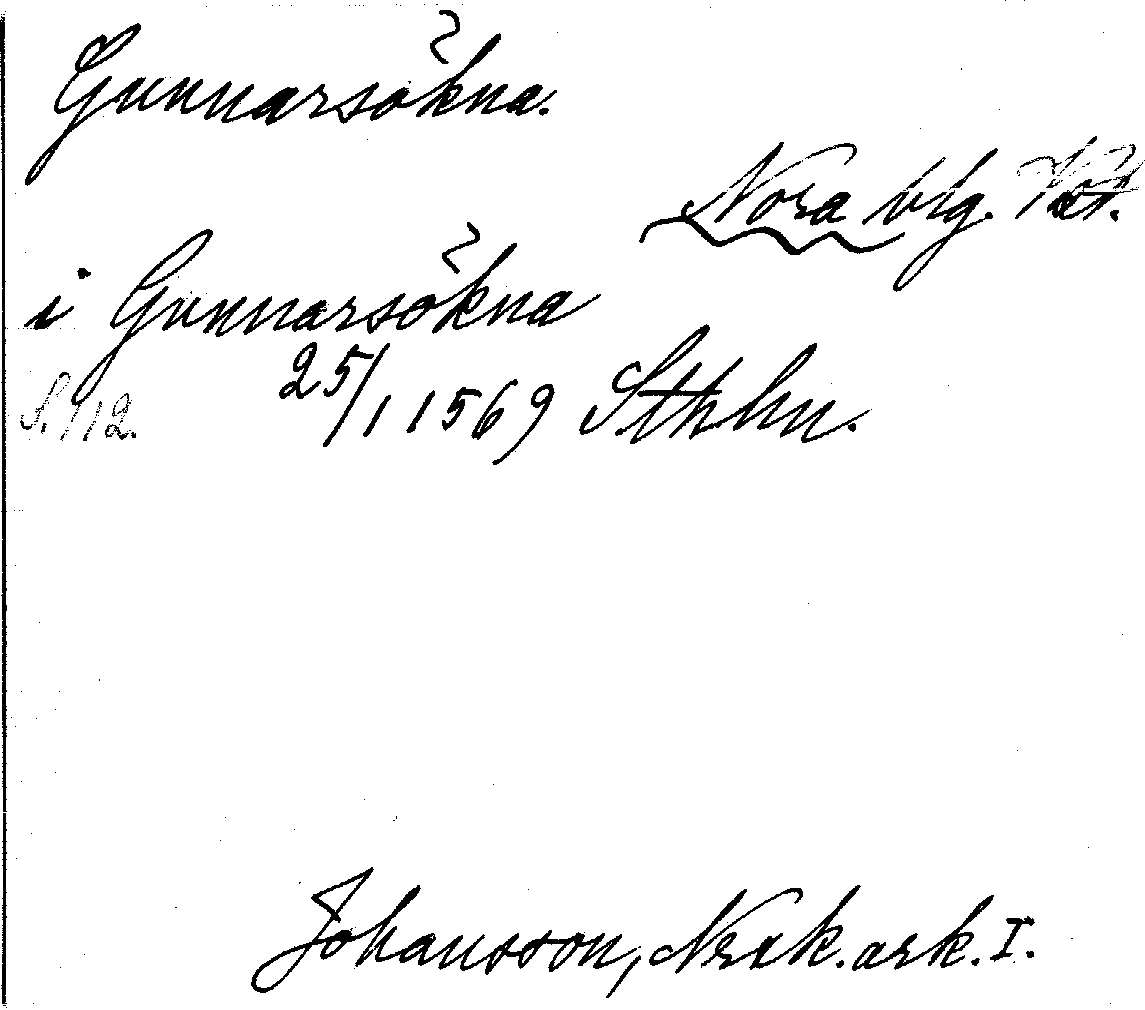 Gunnarsökna.
Nora blg. Vst.
i Gunnarsökna
S. 112. 25/1 1569 Sthlm.
Johansson, Nerik. ark. I.